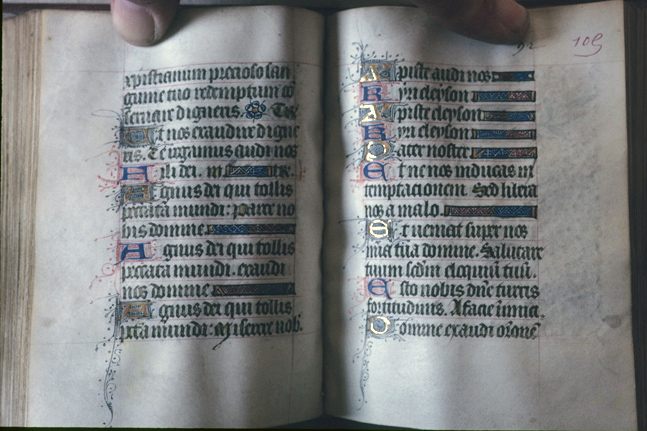 xpistianum precioso san
guine tuo redemptum co
seruare digneris. Te
Et nos exaudire digne
ris. Te rogamus audi nos
Fili dei. iii. te.
Agnus dei qui tollis
peccata mundi: parce no
bis domine.
Agnus dei qui tollis
peccata mundi. exaudi
nos domine
Agnus dei qui tollis
pctā mundi: miserere nob.
92 109
Xpiste audi nos
Kyri eleyson
Xpiste eleyson
Kyri eleyson
Pater noster
Et ne nos inducas in
temptacionem. Sed libera
nos a malo.
Et ueniat super nos
mia tua domine. Salutare
tuum scdm eloquiū tuū.
Esto nobis dne turris
fortitudinis. A facie inimici.
Domine exaudi orōne